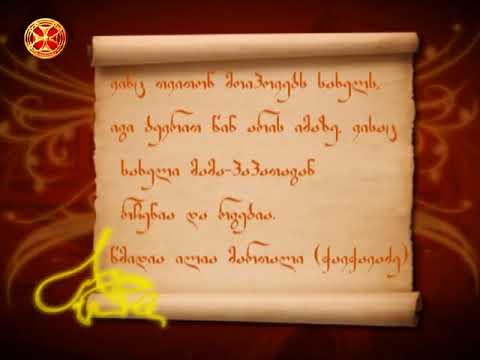 ვინც თვითონ მოიპოვებს სახელს,
იგი ბევრით წინ არის იმაზე, ვისაც
სახელი მამა-პაპათაგან
რჩენია და რგებია.
წმიდია ილია მართალი (ჭავჭავაძე)